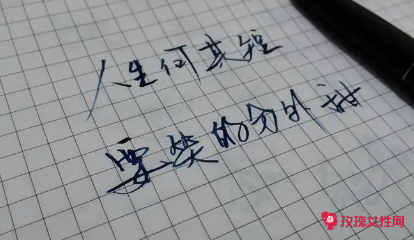 人生何其短
要笑的分外甜
玫瑰女性网